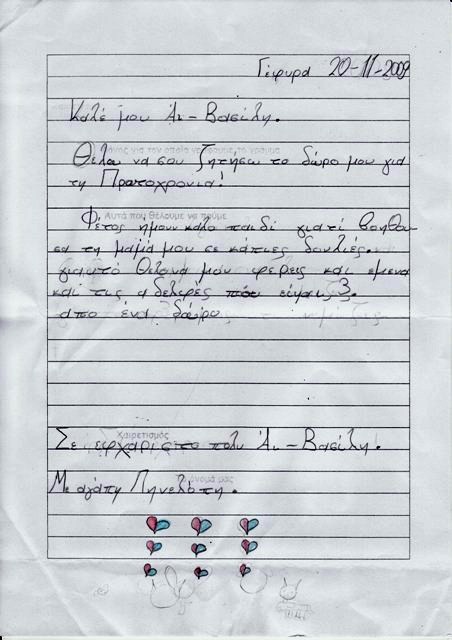 Γέφυρα 20-11-2009
Καλέ μου Άι-Βασίλη.
Θέλω να σου ζητήσω το δώρο μου για
τη Πρωτοχρονιά!
Αυτά που θέλουμε να πούμε
Φέτος ήμουν καλό παιδί γιατί βοηθού-
σα τη μαμά μου σε κάπιες δουλιές.
γιαυτό θέλω να μου φέρεις και εμένα
και τις αδελφές που είναι 3.
απο ένα δώρο
Χαιρετισμός
Σε ευχαριστω πολυ Άι-Βασίλη.
Με αγάπη Πηνελόπη.